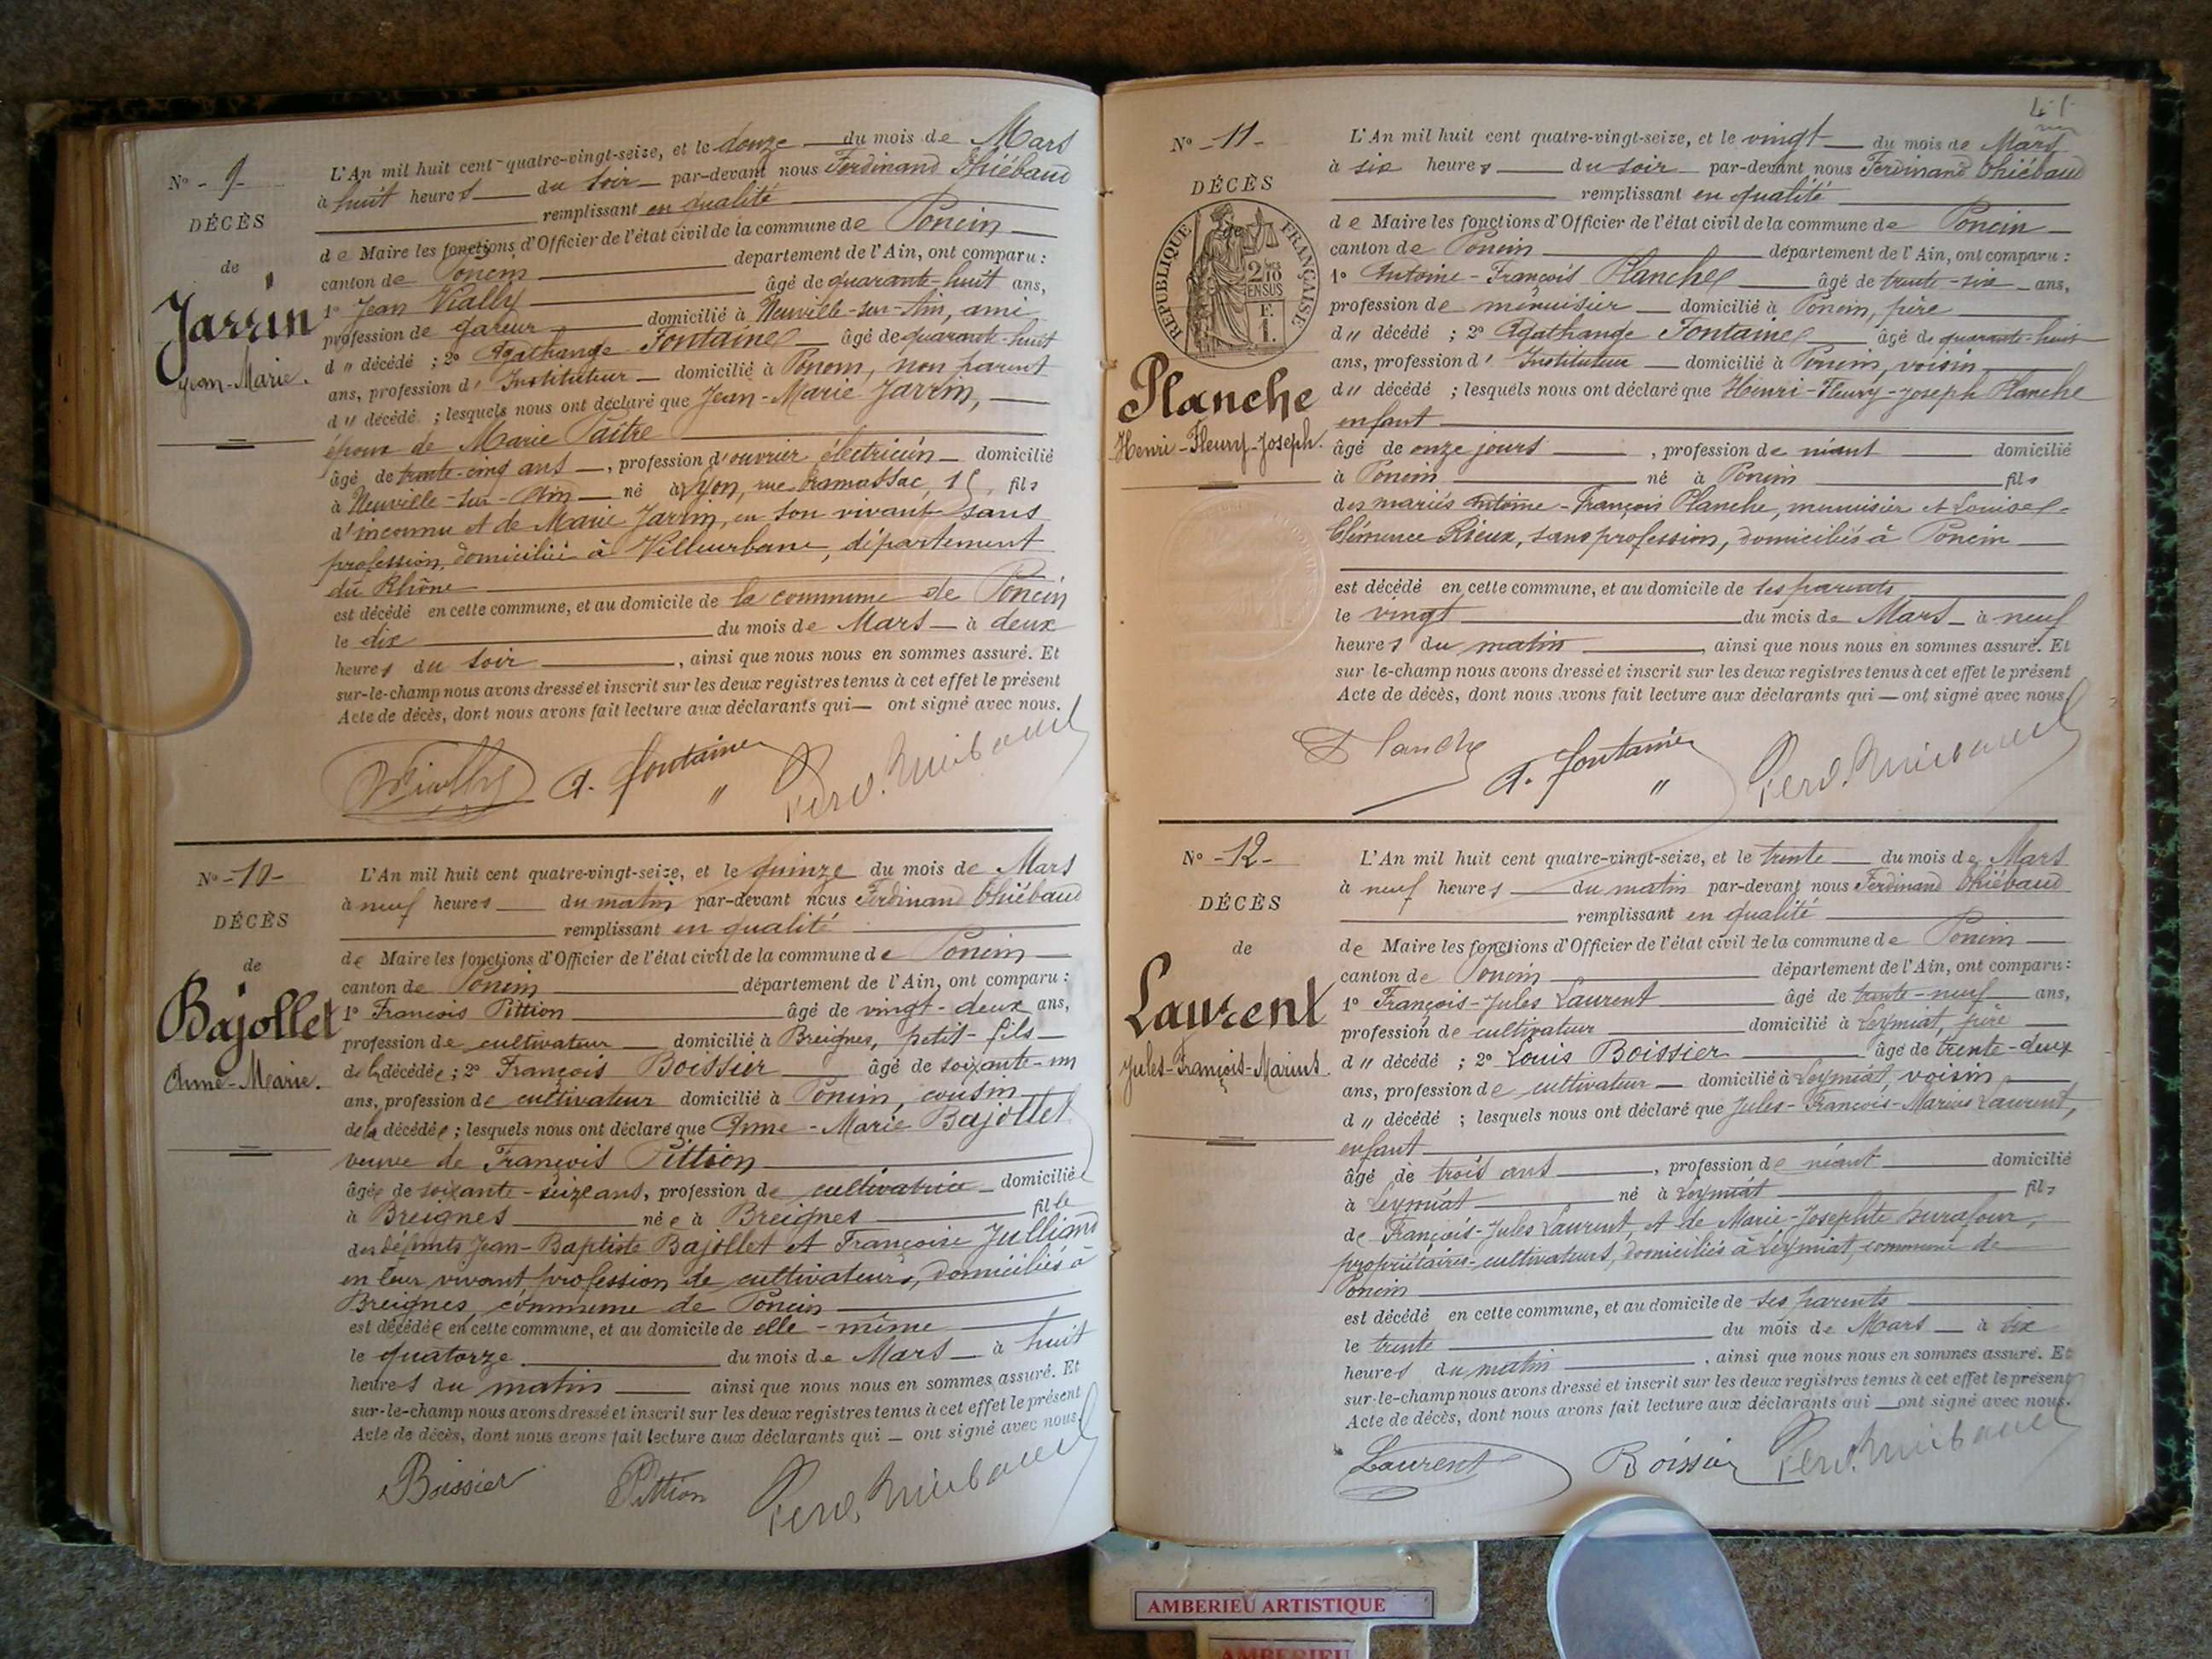 N° - 9 -
DÉCÈS
de
Jarrin
Jean-Marie.
L'An mil huit cent quatre-vingt-seize, et le douze du mois de Mars
à huit heures du soir par-devant nous Ferdinand Thiébaud
remplissant en qualité
de Maire les fonctions d'Officier de l'état civil de la commune de Poncin
canton de Poncin département de l'Ain, ont comparu :
1° Jean Vially âgé de quarante-huit ans,
profession de gareur domicilié à Neuville-sur-Ain, ami
d " décédé ; 2° Agathange Fontaine âgé de quarante-huit
ans, profession d' Instituteur domicilié à Poncin, non parent
d " décédé ; lesquels nous ont déclaré que Jean-Marie Jarrin,
époux de Marie Paître
âgé de trente-cinq ans , profession d'ouvrier électricien domicilié
à Neuville-sur-Ain né à Lyon, rue tramassac, 15, fils
d'inconnu et de Marie Jarrin, en son vivant sans
profession, domiciliée à Villeurbane, département
du Rhône
est décédé en cette commune, et au domicile de la commune de Poncin
le dix du mois de Mars à deux
heures du soir , ainsi que nous nous en sommes assuré. Et
sur-le-champ nous avons dressé et inscrit sur les deux registres tenus à cet effet le présent
Acte de décès, dont nous avons fait lecture aux déclarants qui ont signé avec nous.
Vially A. Fontaine Ferd. Thiébaud
N° - 10 -
DÉCÈS
de
Bajollet
Anne-Marie.
L'An mil huit cent quatre-vingt-seize, et le quinze du mois de Mars
à neuf heures du matin par-devant nous Ferdinand Thiébaud
remplissant en qualité
de Maire les fonctions d'Officier de l'état civil de la commune de Poncin
canton de Poncin département de l'Ain, ont comparu :
1° François Pittion âgé de vingt-deux ans,
profession de cultivateur domicilié à Breignes, petit-fils
de la décédée ; 2° François Boissier âgé de soixante-un
ans, profession de cultivateur domicilié à Poncin, cousin
de la décédée ; lesquels nous ont déclaré que Anne-Marie Bajollet
veuve de François Pittion
âgée de soixante-seize ans, profession de cultivatrice domiciliée
à Breignes née à Breignes fille
des défunts Jean-Baptiste Bajollet et Françoise Julliand
en leur vivant profession de cultivateurs, domiciliés à
Breignes, commune de Poncin
est décédée en cette commune, et au domicile de elle-même
le quatorze du mois de Mars à huit
heures du matin ainsi que nous nous en sommes assuré. Et
sur-le-champ nous avons dressé et inscrit sur les deux registres tenus à cet effet le présent
Acte de décès, dont nous avons fait lecture aux déclarants qui ont signé avec nous.
Boissier Pittion Ferd. Thiébaud
N° - 11 -
DÉCÈS
RÉPUBLIQUE FRANÇAISE
2/10 EN SUS
F. 1.
Planche
Henri-Fleury-Joseph.
L'An mil huit cent quatre-vingt-seize, et le vingt du mois de Mars
à six heures du soir par-devant nous Ferdinand Thiébaud
remplissant en qualité
de Maire les fonctions d'Officier de l'état civil de la commune de Poncin
canton de Poncin département de l'Ain, ont comparu :
1° Antoine-François Planche âgé de trente-six ans,
profession de menuisier domicilié à Poncin, père
d " décédé ; 2° Agathange Fontaine âgé de quarante-huit
ans, profession d' Instituteur domicilié à Poncin, voisin
d " décédé ; lesquels nous ont déclaré que Henri-Fleury-Joseph Planche
enfant
âgé de onze jours , profession de néant domicilié
à Poncin né à Poncin fils
des mariés Antoine-François Planche, menuisier et Louise-
Clémence Rieux, sans profession, domiciliés à Poncin
est décédé en cette commune, et au domicile de ses parents
le vingt du mois de Mars à neuf
heures du matin , ainsi que nous nous en sommes assuré. Et
sur-le-champ nous avons dressé et inscrit sur les deux registres tenus à cet effet le présent
Acte de décès, dont nous avons fait lecture aux déclarants qui ont signé avec nous.
Planche A. Fontaine Ferd. Thiébaud
N° - 12 -
DÉCÈS
de
Laurent
Jules-François-Marius.
L'An mil huit cent quatre-vingt-seize, et le trente du mois de Mars
à neuf heures du matin par-devant nous Ferdinand Thiébaud
remplissant en qualité
de Maire les fonctions d'Officier de l'état civil de la commune de Poncin
canton de Poncin département de l'Ain, ont comparu :
1° François-Jules Laurent âgé de trente-neuf ans,
profession de cultivateur domicilié à Leymiat, père
d " décédé ; 2° Louis Boissier âgé de trente-deux
ans, profession de cultivateur domicilié à Leymiat, voisin
d " décédé ; lesquels nous ont déclaré que Jules-François-Marius Laurent,
enfant
âgé de trois ans , profession de néant domicilié
à Leymiat né à Leymiat fils
de François-Jules Laurent, et de Marie-Josephte Durafour,
propriétaires-cultivateurs, domiciliés à Leymiat, commune de
Poncin
est décédé en cette commune, et au domicile de ses parents
le trente du mois de Mars à six
heures du matin , ainsi que nous nous en sommes assuré. Et
sur-le-champ nous avons dressé et inscrit sur les deux registres tenus à cet effet le présent
Acte de décès, dont nous avons fait lecture aux déclarants qui ont signé avec nous.
Laurent Boissier Ferd. Thiébaud
AMBERIEU ARTISTIQUE
AMBERIEU